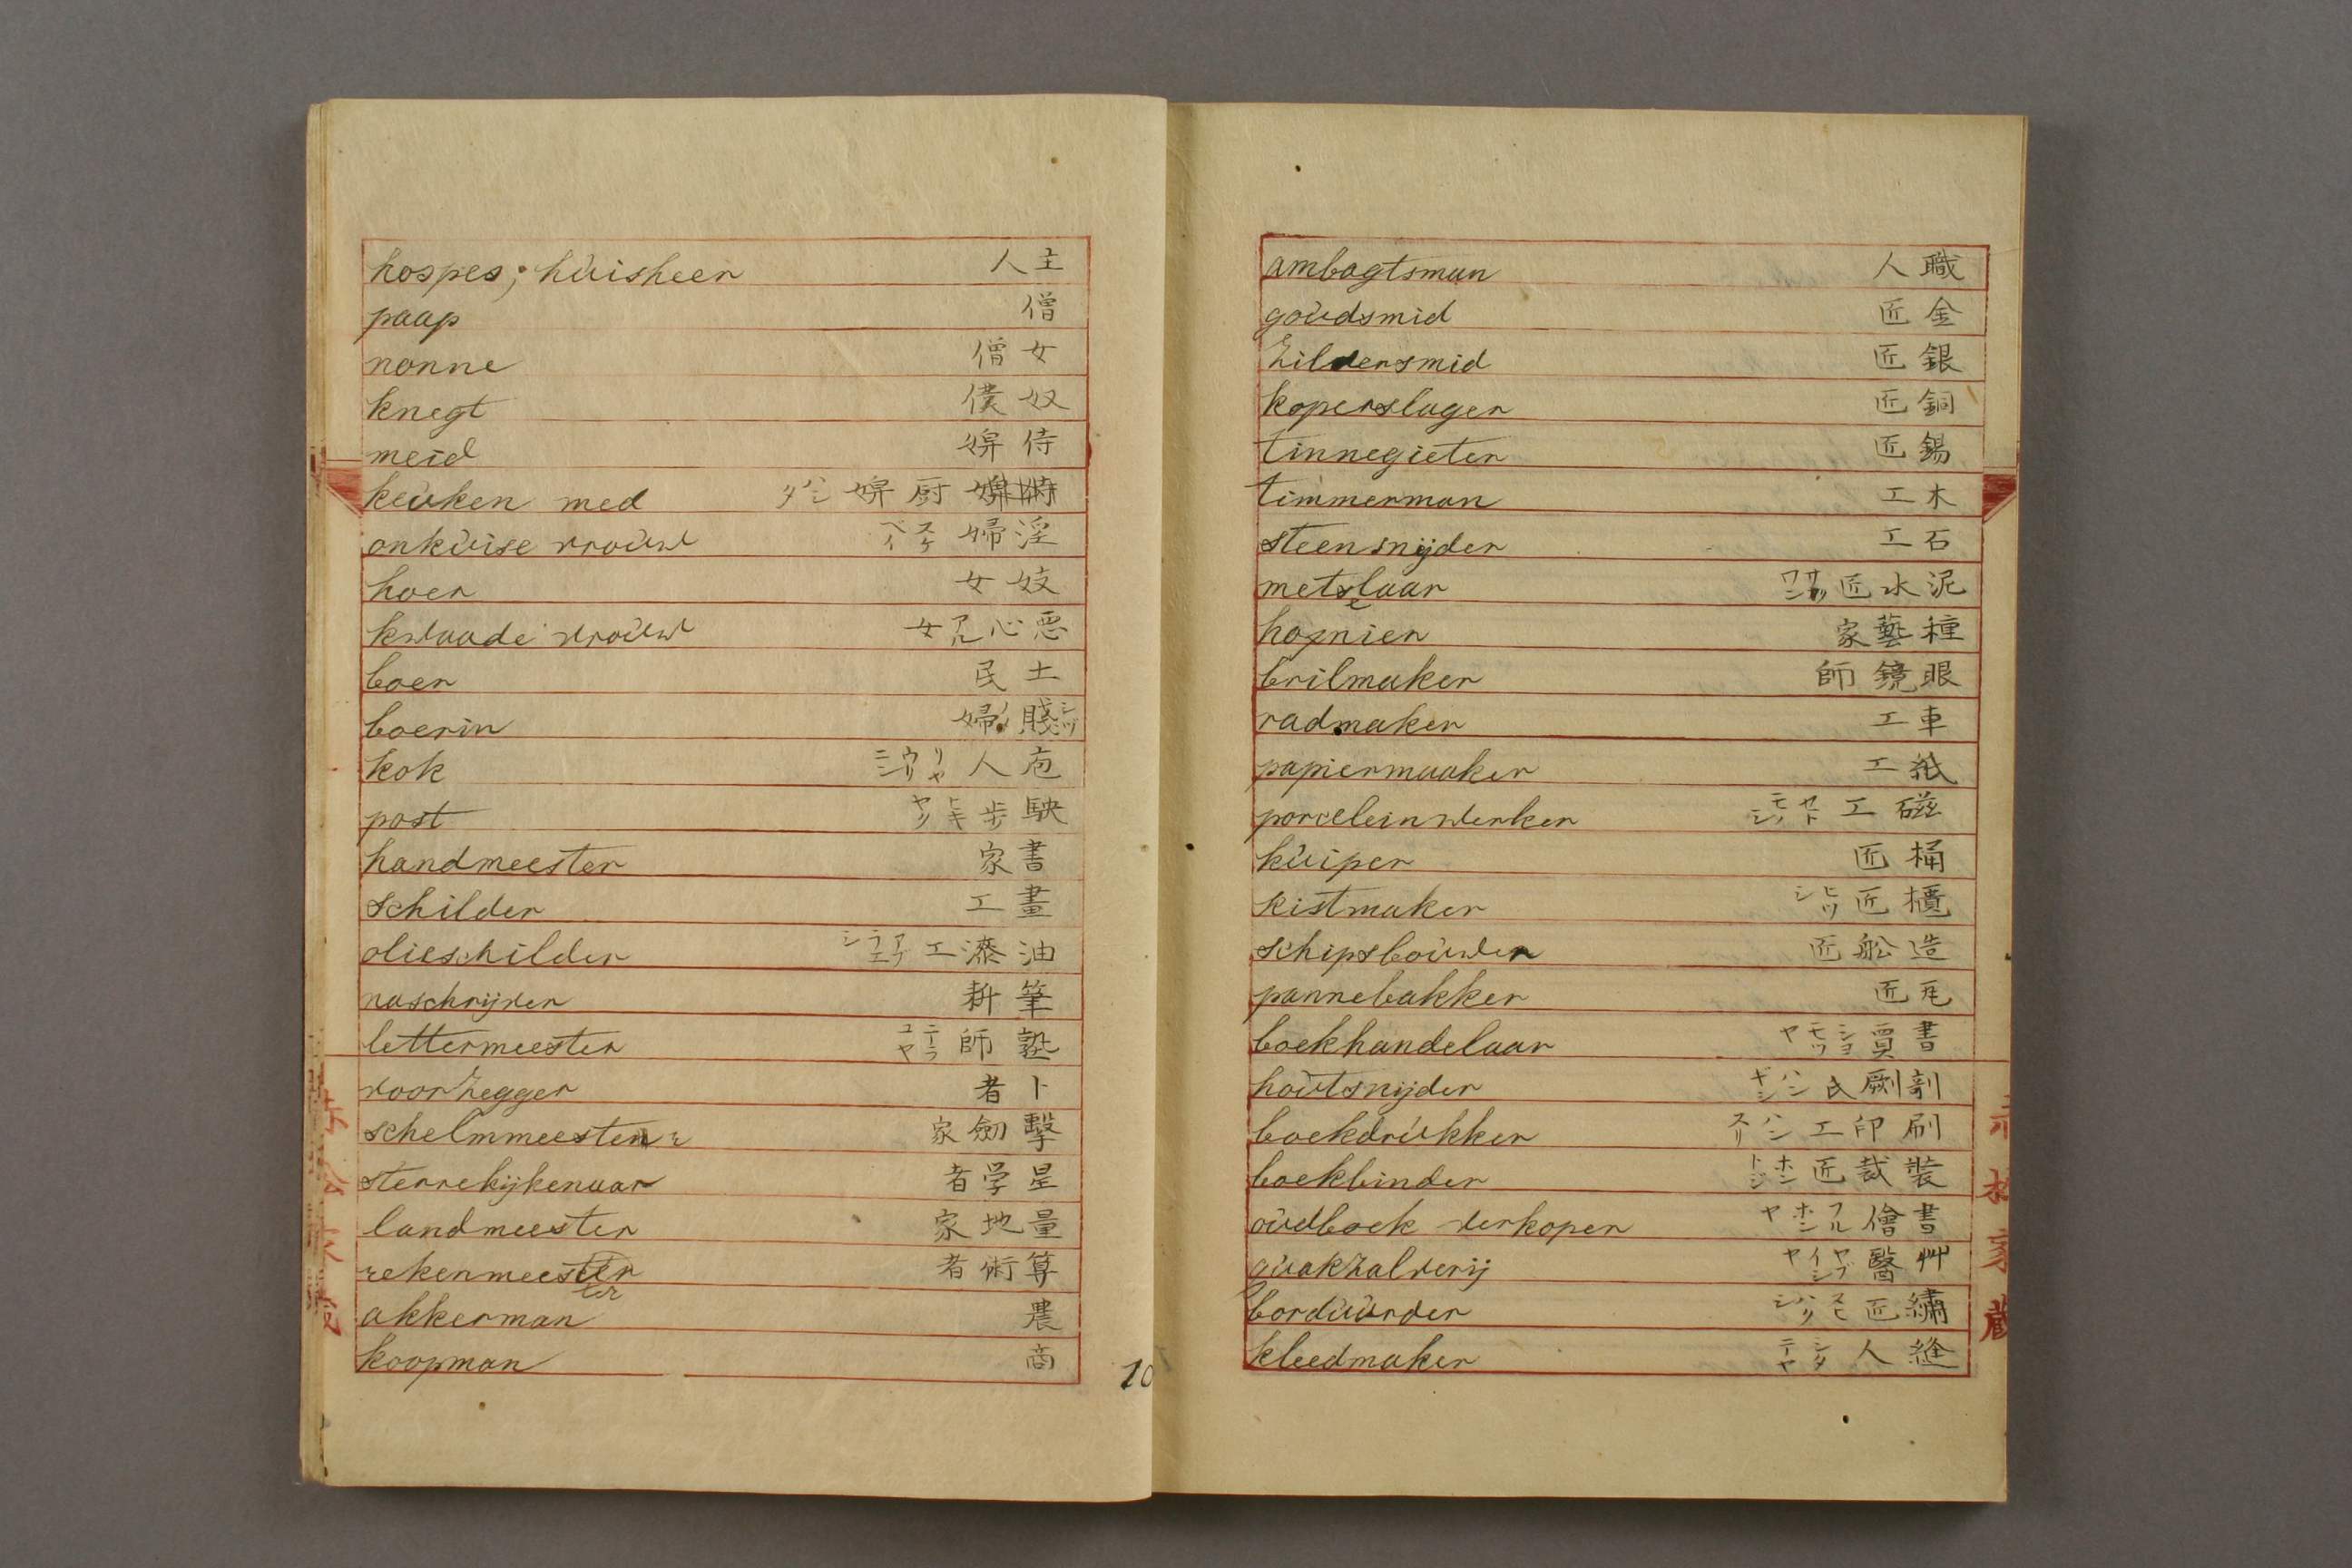 hospes; hùisheer 主人
paap 僧
nonne 女僧
knegt 奴僕
meid 侍婢
keùken med 厨婢 ハシタ
onkùise vroùw 淫婦 スケベイ
hoer 妓女
kwaade vroùw 悪心アル女
boer 土民
boerin 賤シヅノ婦
kok 庖人 リヤウリニン
post 駛歩 ヒキヤク
handmeester 書家
schilder 畫工
olieschilder 油漆工 アブラエシ
naschrijver 筆耕
lettermeester 塾師 テラコヤ
voorzegger 卜者
schelmmeester 擊劍家
sterrekijkenaar 星学者
landmeester 量地家
rekenmeester 算術者
akkerman 農
koopman 商
10
ambagtsman 職人
goùdsmid 金匠
zilversmid 銀匠
koperslager 銅匠
tinnegieter 錫匠
timmerman 木工
steensnijder 石工
metselaar 泥水匠
hovnier 種藝家
brilmaker 眼鏡師
radmaker 車工
papiermaaker 紙工
porceleinwerker 磁工 セトモノシ
kùiper 桶匠
kistmaker 櫃匠 ヒツシ
schipsboùwer 造舩匠
pannebakker 瓦匠
boekhandelaar 書賈 シヨモツヤ
hoùtsnijder 剞劂氏 ハンギシ
boekdrùkker 刷印工 ハンスリ
boekbinder 装裁匠 ホントジ
oùdboek verkoper 書儈 フルホンヤ
qùakzalverij 艸醫 ヤブイシヤ
bordùùrder 繍匠
kleedmaker 縫人 シタテヤ